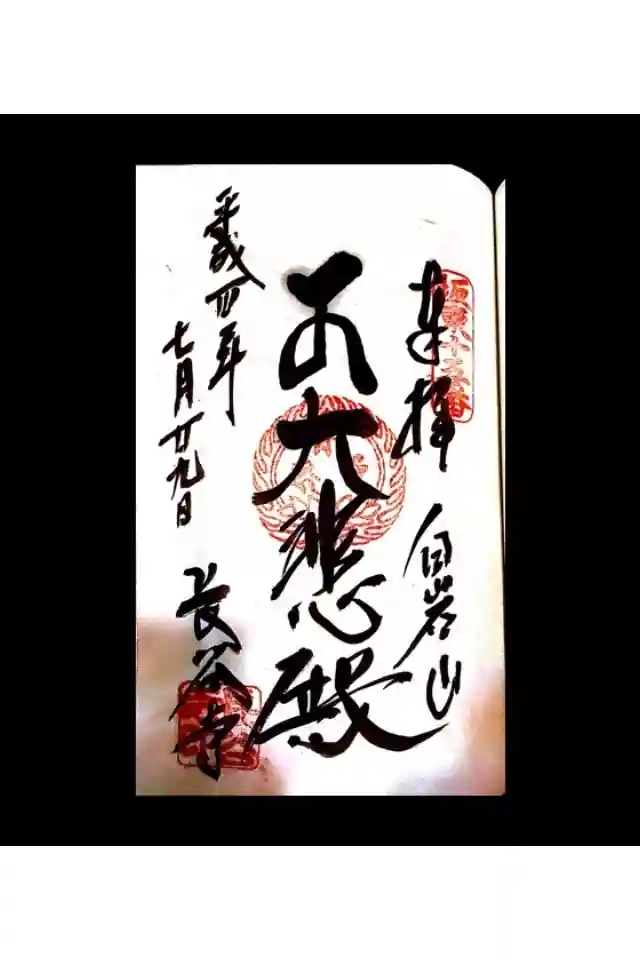 奉拝 白岩山
坂東十五番
大悲殿
平成四年
七月廿九日
長谷寺